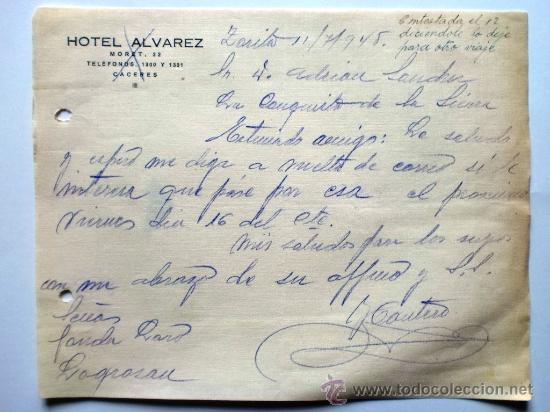 HOTEL ALVAREZ
MORET, 22
TELÉFONOS, 1300 Y 1331
CACERES
Contestada el 12
diciendole lo deje
para otro viaje
Zorita 11/7/1945.
Sr. D. Adrian Sanchez
La Conquista de la Sierra
Estimado amigo: Le saludo
y espero me diga a vuelta de correo si le
interesa que pase por esa el proximo
Viernes dia 16 del cte.
Mis saludos para los suyos
con un abrazo de su affmo y S.S.
Señas
Fonda
Logrosan
todocoleccion.net